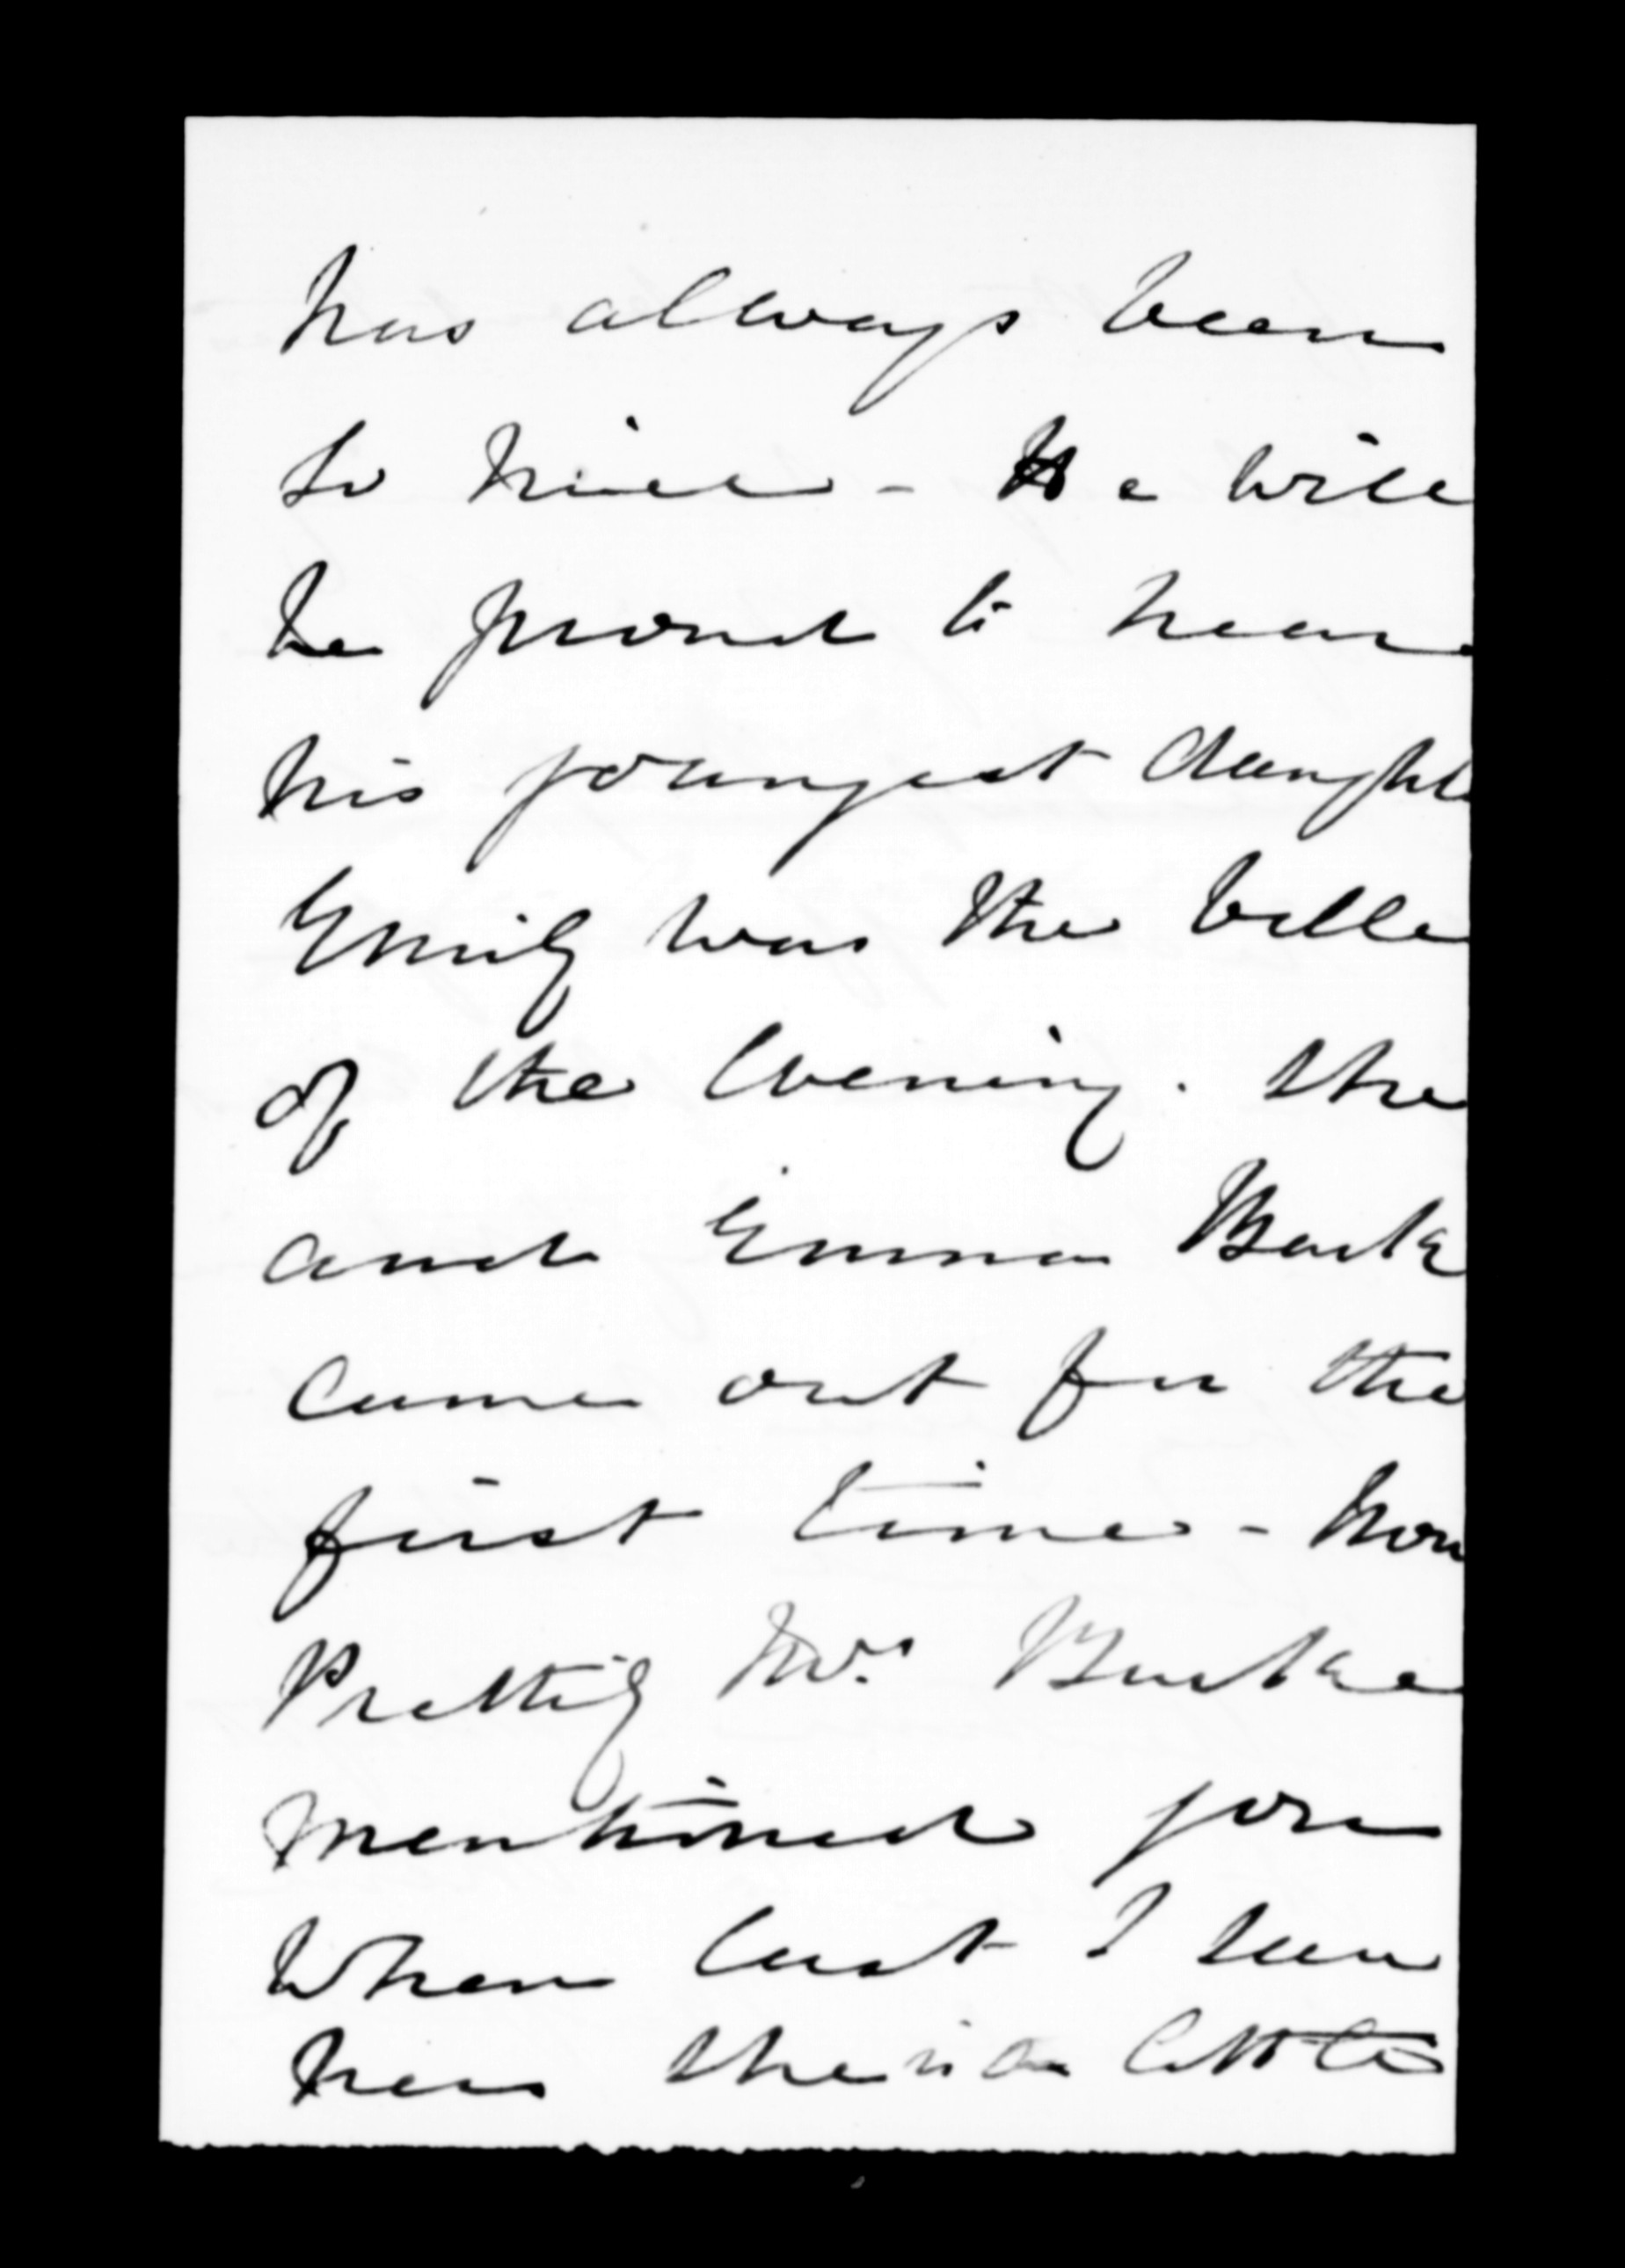 has always been
so nice - He will
be proud to hear
his youngest daught
Emily was the belle
of the Evening. She
and Emma Burke
came out for the
first time - how
Prettily Mrs Burke
mentioned you
when last I saw
her she is a little